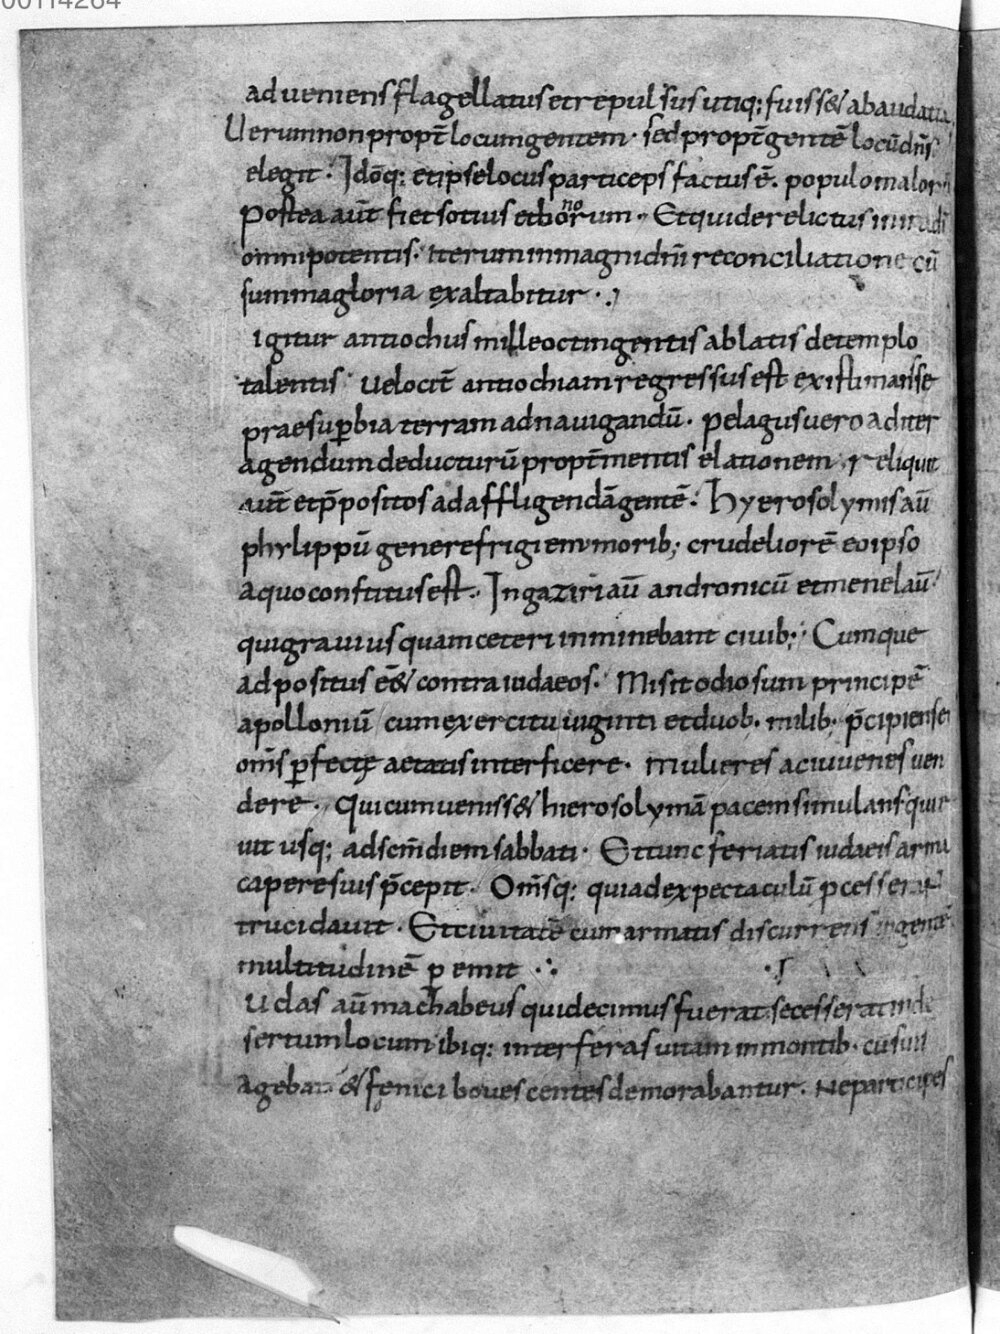 00114264
adueniens flagellatus et repulsus utiq; fuiss& abaudatia
Uerum non propt̄ locum gentem · sed propt̄ gentē locū dn̄s
elegit · Idōq; et ipse locus particeps factus ē · populo malor̄
Postea aut̄ fiet sotius et bonorum · Et qui derelictus in
omnipotentis · iterum in magni dn̄i reconciliatione cū
summa gloria exaltabitur ·
Igitur antiochus mille octingentis ablatis de templo
talentis uelocit̄ antiochiam regressus est existimans se
prae supbia terram ad nauigandū · pelagus uero ad iter
agendum deducturū propt̄ mentis elationem · reliquit
aut̄ et p̄positos ad affligendā gentē · hyerosolymis aū
phylippū genere frigiem morib; crudeliorē eo ipso
a quo constitutus est · In gaziri aū andronicū et menelaū
qui grauius quam ceteri inminebant ciuib; · Cumque
adpositus ē& contra iudaeos · Misit odiosum principē
apolloniū cum exercitu uiginti et duob · milib · p̄cipiens ei
om̄s pfectę aetatis interficere · mulieres ac iuuenes uen
dere · Qui cum ueniss& hierosolymā pacem simulans quie
uit usq; ad sc̄m diem sabbati · Et tunc feriatis iudaeis arma
capere suis p̄cepit · Om̄sq; qui ad expectaculū pcesserant
trucidauit · Et ciuitatē cum armatis discurrens ingentē
multitudinē p emit ∴
Udas aū machabeus qui decimus fuerat secesserat in de
sertum locum ibiq; inter feras uitam in montib · cū suis
agebat & feni ci bo uescentes demorabantur · Ne participes